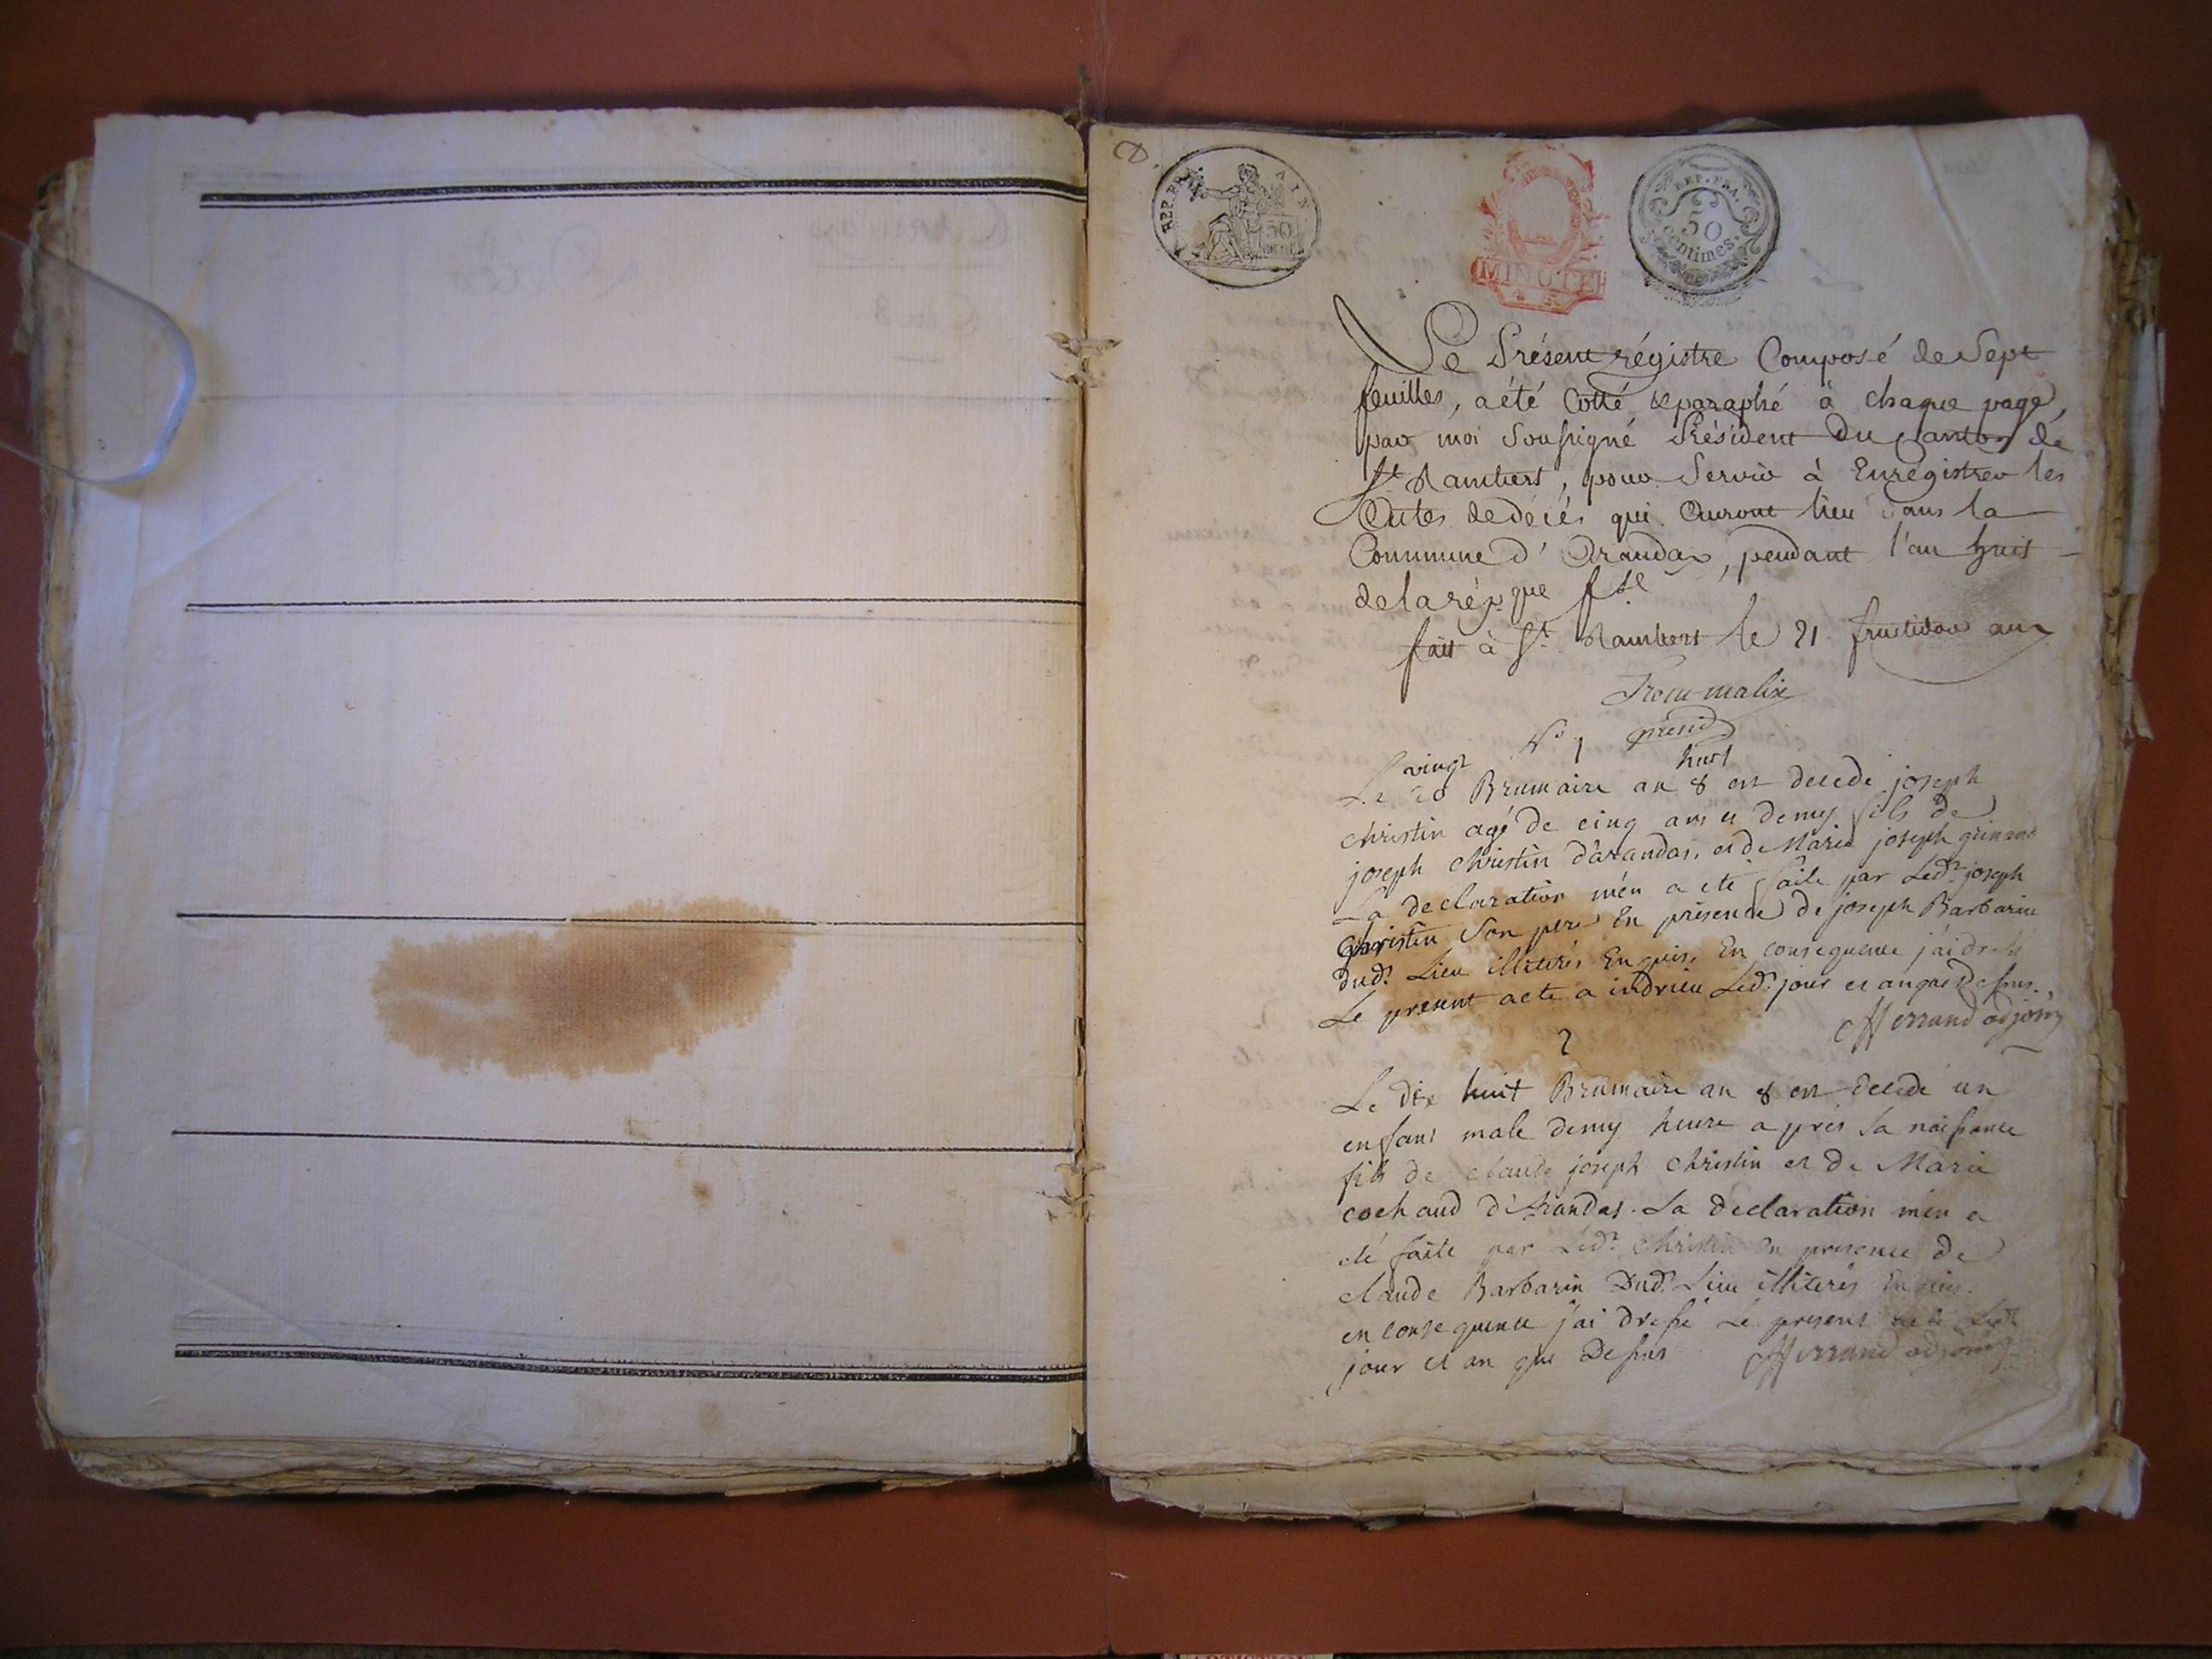 REP. FRA. AIN
50
MINUTE
REP. FRA.
50
centimes.
Le Présent régistre Composé de Sept
feuilles, a été Cotté & paraphé à chaque page,
par moi Soussigné Président Du Canton de
St. Rambert, pour Servir à Enrégistrer les
Actes de décés qui Auront lieu dans la
Commune d'Arandas, pendant l'an huit
de la rép.que f.se
fait à St. Rambert le 21 fructidor an 7
présid
N° 1
vingt huit
Le 20 Brumaire an 8 est decedé joseph
christin agé de cinq ans et demy fils de
joseph christin d'arandas, et de Marie joseph
La declaration m'en a eté faite par Ledt. joseph
christin Son pere En présence de joseph Barbarin
dudt. Lieu illiterés Enquis, En consequence j'ai dressé
Le present acte a indrieu Ledt. jour et an que Dessus.
Merrand adjoint
2
Le dix huit Brumaire an 8 est decedé un
enfant male demy heure apres Sa naissance
fils de claude joseph christin et de Marie
cochaud d'Arandas. La declaration m'en a
eté faite par Ledt. christin En presence de
claude Barbarin Dudt. Lieu illiterés Enquis.
en consequence j'ai dressé Le present acte Ledt.
jour et an que Dessus Merrand adjoint